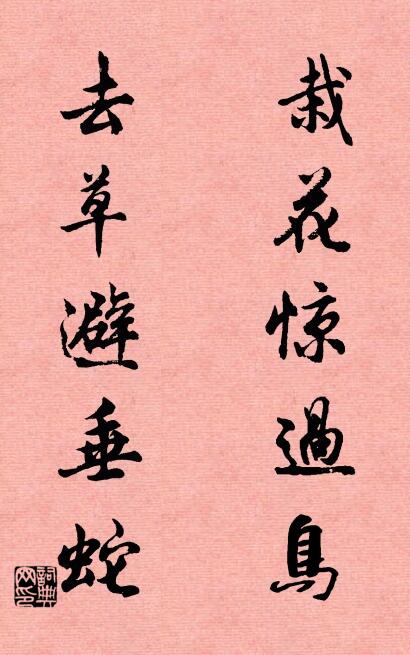 栽花惊過鳥
去草避垂蛇
詞典网印